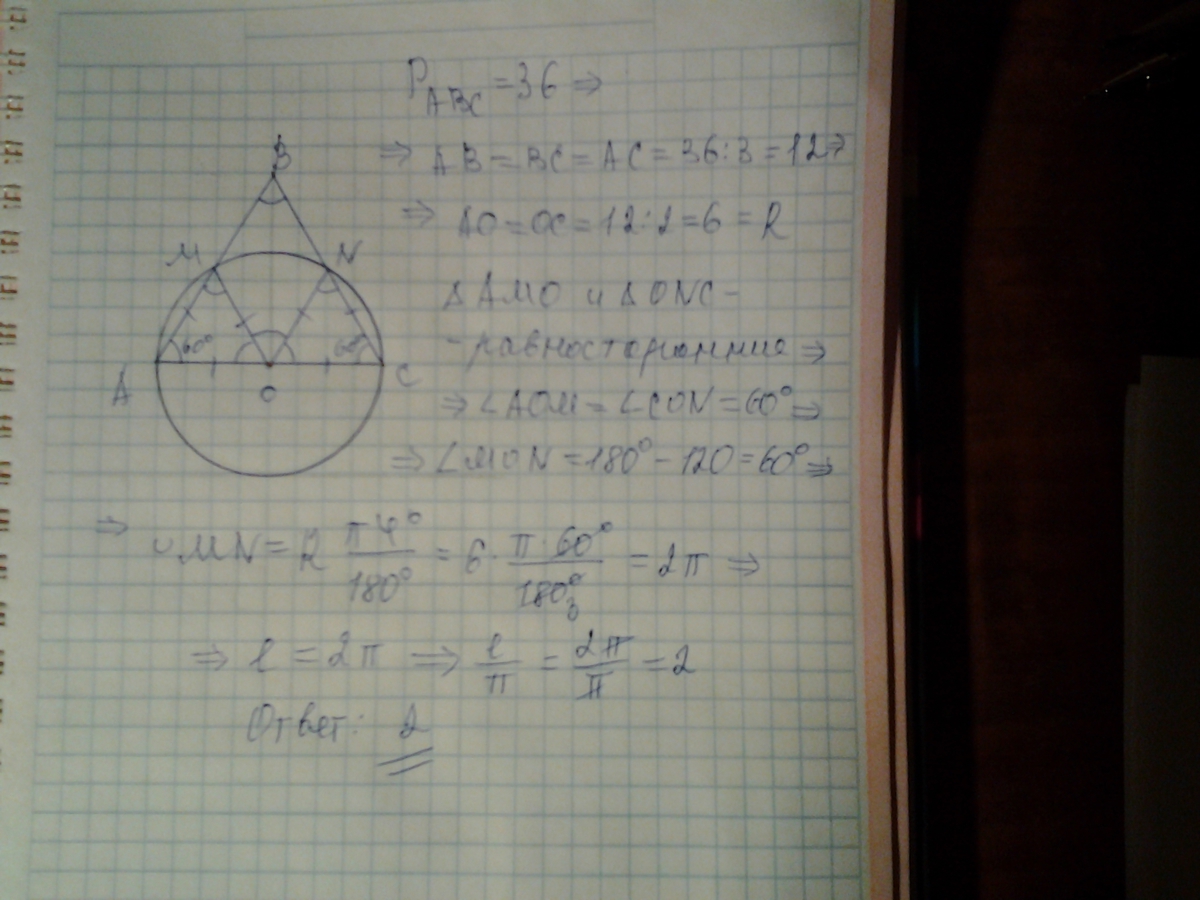 P ABC = 36 ⇒
⇒ AB = BC = AC = 36:3 = 12 ⇒
⇒ AO = OC = 12:2 = 6 = R
Δ AMO и Δ ONC -
- равносторонние ⇒
⇒ ∠AOM = ∠CON = 60° ⇒
⇒ ∠MON = 180° - 120 = 60° ⇒
B
M
N
60°
60°
A
O
C
⇒ ◡MN = R πφ°/180° = 6 · π·60°/180° 3 = 2π ⇒
⇒ l = 2π ⇒ l/π = 2π/π = 2
Ответ: 2